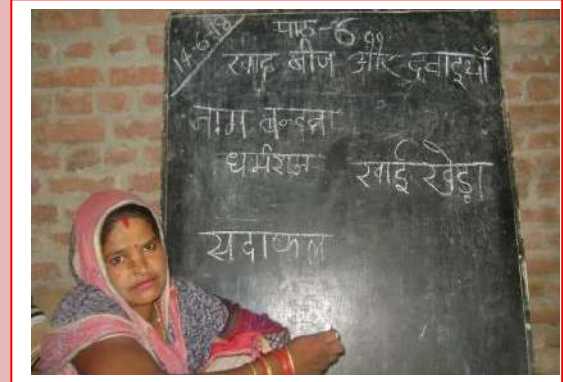 14-6-18
पाठ-6
खाद बीज और दवाइयाँ
नाम बन्दना
धर्मराम
खाई खेड़ा
सदाफल